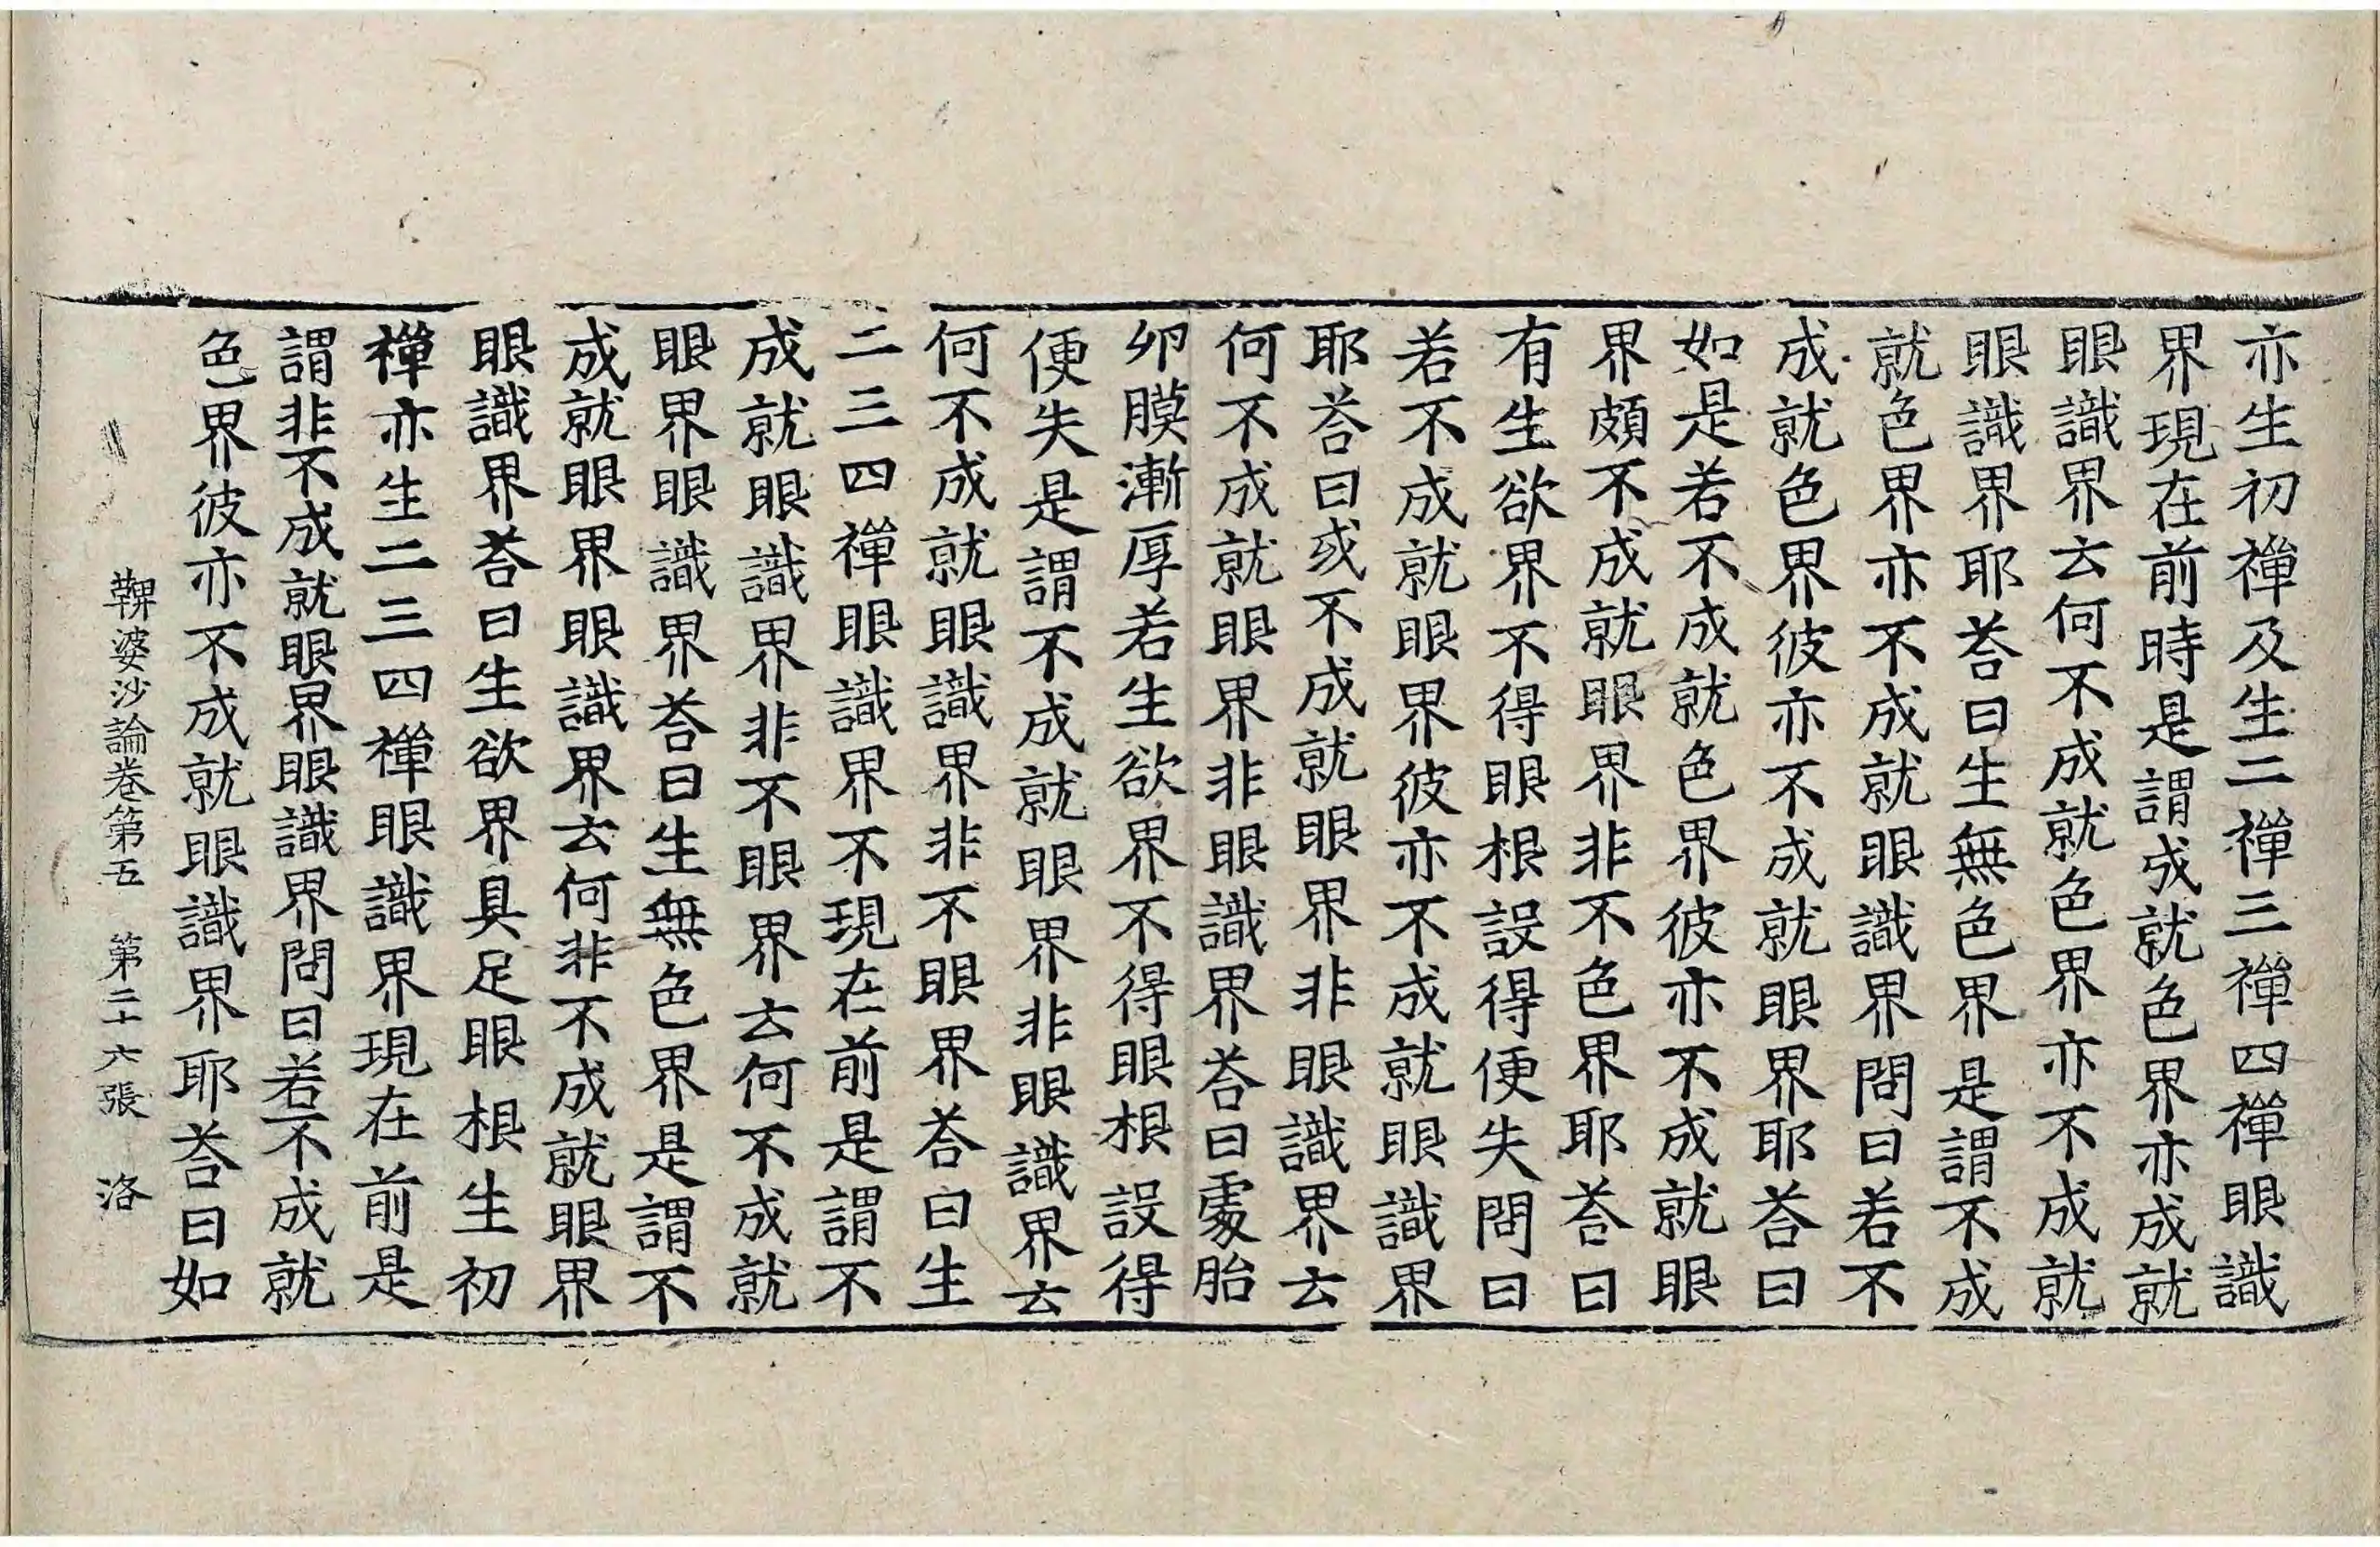 亦生初禪及生二禪三禪四禪眼識
界現在前時是謂成就色界亦成就
眼識界云何不成就色界亦不成就
眼識界耶荅曰生無色界是謂不成
就色界亦不成就眼識界問曰若不
成就色界彼亦不成就眼界耶荅曰
如是若不成就色界彼亦不成就眼
界頗不成就眼界非不色界耶荅曰
有生欲界不得眼根設得便失問曰
若不成就眼界彼亦不成就眼識界
耶荅曰或不成就眼界非眼識界云
何不成就眼界非眼識界荅曰處胎
卵膜漸厚若生欲界不得眼根設得
便失是謂不成就眼界非眼識界云
何不成就眼識界非不眼界荅曰生
二三四禪眼識界不現在前是謂不
成就眼識界非不眼界云何不成就
眼界眼識界荅曰生無色界是謂不
成就眼界眼識界云何非不成就眼界
眼識界荅曰生欲界具足眼根生初
禪亦生二三四禪眼識界現在前是
謂非不成就眼界眼識界問曰若不成就
色界彼亦不成就眼識界耶荅曰如
鞞婆沙論卷第五 第二十六張 洛